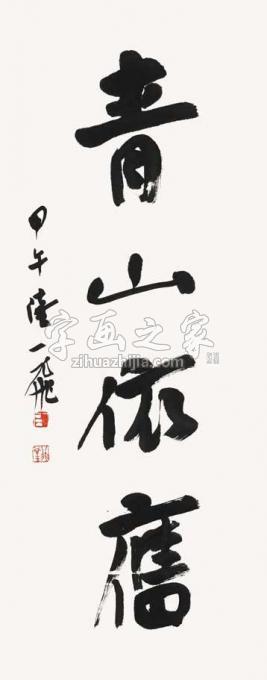 青山依舊
甲午 陸一飛
字画之家
zihuazhijia.com